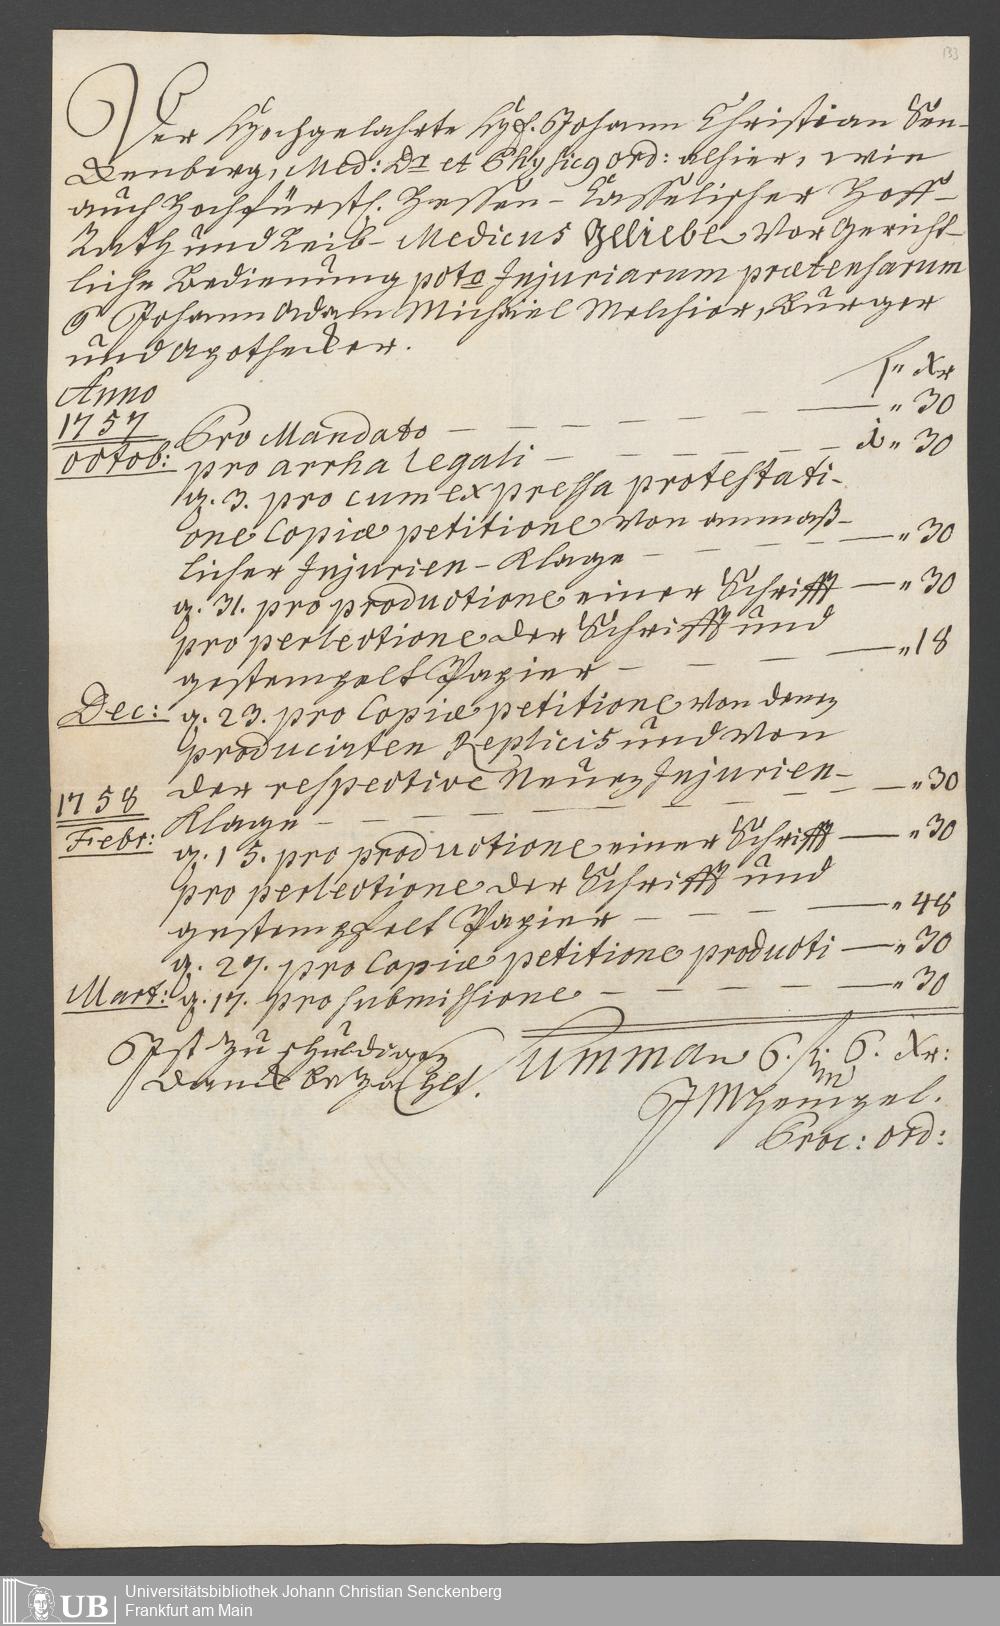 133
Der Hochgelahrte H. Johann Christian Sen-
ckenberg, Med: Dr et Physicg ord: alhier, wie
auch Hochfürstl. Hessen-Casselischer Hoff-
Rath und Leib-Medicus geliebe vor gericht-
liche Bedienung pcto Injuriarum prætensarum
Johann Adam Michael Melchior, Burger
und Apothecker.
f " Xr
Anno
1757
Octob:
Pro Mandato — — — — — — " 30
pro arrha legali — — — — — — 1 " 30
q. 3. pro cum expressa protestati-
one Copiæ petitione von anmaß-
licher Injurien-Klage — — — — " 30
q. 31. pro productione einer Schrifft — " 30
pro perlectione der Schrifft und
gestempelt Papier — — — — " 18
Dec: q. 23. pro Copiæ petitione von denen
producirten Replicis und von
der respective Neuen Injurien-
Klage — — — — — — — " 30
1758
Febr:
q. 15. pro productione einer Schrifft — " 30
pro perlectione der Schrifft und
gestempelt Papier — — — — " 48
q. 27. pro Copiæ petitione producti — " 30
Mart: q. 17. pro submissione — — — — " 30
Summa 6. f. 6. Xr:
Ist zu schuldigen
Danck bezahlt.
JMHempel.
Proc: ord:
UB
Universitätsbibliothek Johann Christian Senckenberg
Frankfurt am Main